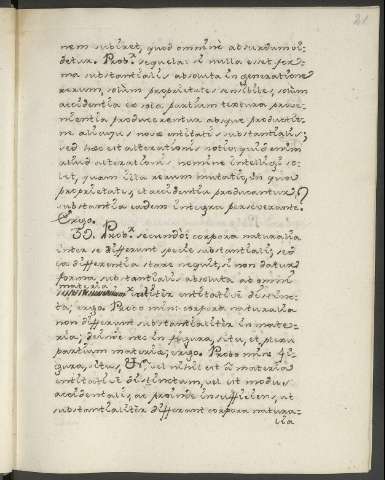 21
nem subiret, quod omninò absurdum vi-
detur. Prob.r sequela: si nulla esset for-
ma substantialis absoluta in generatione
rerum, solùm proprietates sensibiles, solùm
accidentia ex sola partium textura prove-
nientia producerentur absque productio-
ne alicujus novæ entitatis substantialis;
sed hæc est alterationis notio; quid enim
aliud alterationis nomine intelligi so-
let, quam illa rerum mutatio, in qua
proprietates, et accidentia producantur,
substantia eadem integra perseverante?
Ergo.
55. Prob.r secundò: corpora naturalia
inter se differunt specie substantiali; sed
ea differentia stare nequit, si non datur
forma substantialis absoluta ab omni
materia
realiter entitativè distinc-
ta; ergo. Prob.o min: corpora naturalia
non differunt substantialiter in mate-
ria; deinde nec in figura, situ, et
partium materiæ; ergo. Probo min: fi-
gura, situs, &.a, vel nihil est à materia
entitativè distinctum, vel est modus
accidentalis, ac proinde insufficiens, ut
substantialiter differant corpora natura-
lia